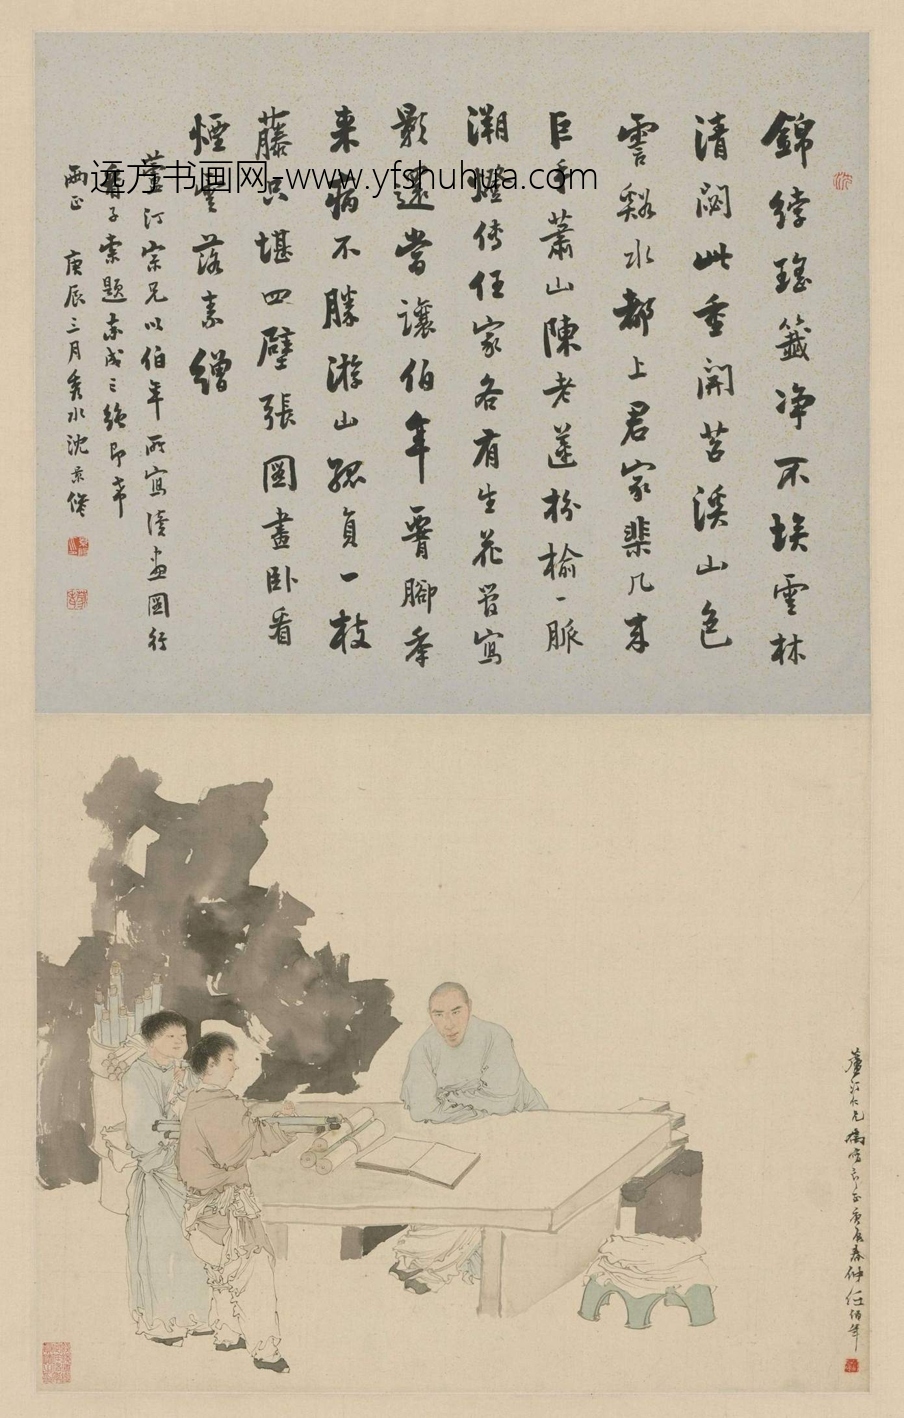 錦綍瑤籤净不埃雲林
清閟此重開苕溪山色
霅谿水都上君家棐几来
巨手蕭山陳老蓮枌榆一脈
溯燈傳任家各有生花管寫
影還當讓伯年胥腳季
来病不勝游山孤負一枝
藤只堪四壁張圖畫卧看
煙雲落素繒
蘆汀宗兄以伯年所寫讀畫圖行
看子索題率成三絕即希
兩正 庚辰三月秀水沈景修
远方书画网-www.yfshuhua.com
蘆汀仁兄 庚辰春仲任伯年